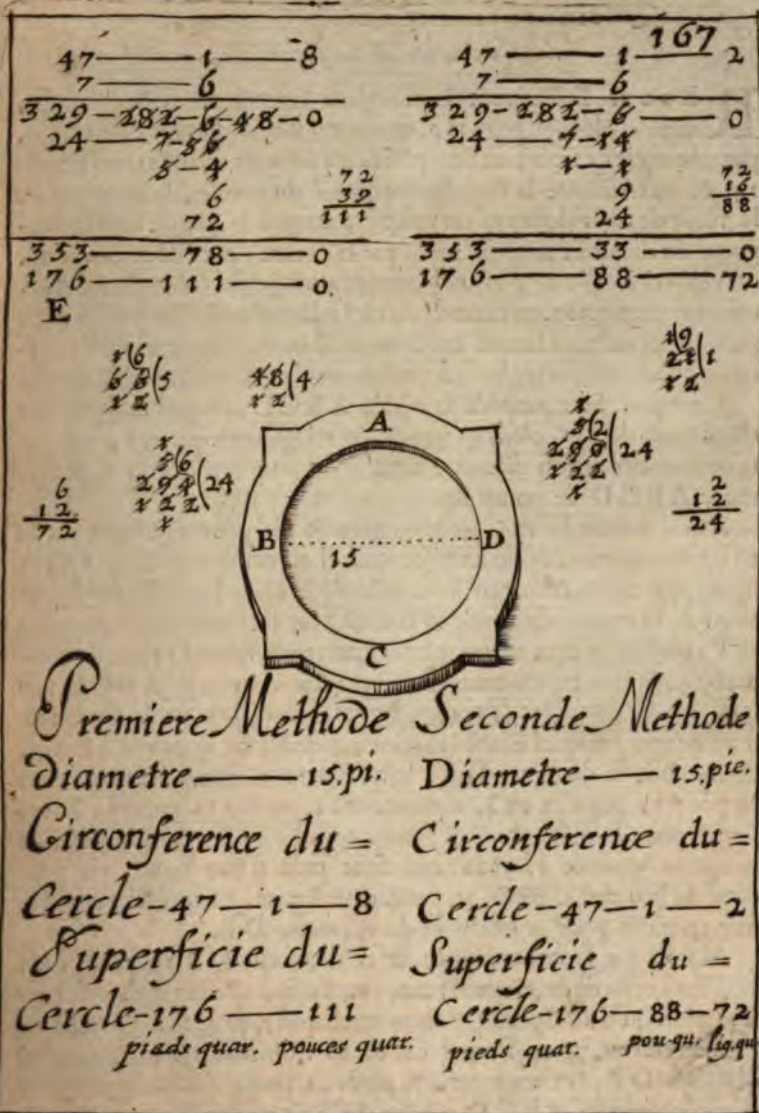 167
47 — 1 — 8
7 — 6
329 - 282 - 6 - 48 - 0
24 — 7 - 56
5 - 4
6
72
72
39
111
353 — 78 — 0
176 — 111 — 0
E
47 — 1 — 2
7 — 6
329 - 282 - 6 — 0
24 — 7 - 14
1 — 1
9
24
72
16
88
353 — 33 — 0
176 — 88 — 72
1(6
68(5
12
48(4
12
1
5(6
294(24
122
1
6
12
72
1(9
21(1
12
1
5(2
290(24
122
1
2
12
24
A
B D
15
C
Premiere Methode
Diametre — 15.pi.
Circonference du =
Cercle - 47 — 1 — 8
Superficie du =
Cercle - 176 — 111
pieds quar. pouces quar.
Seconde Methode
Diametre — 15.pie.
Circonference du =
Cercle - 47 — 1 — 2
Superficie du =
Cercle - 176 — 88 - 72
pieds quar. pou-qu. lig.qu